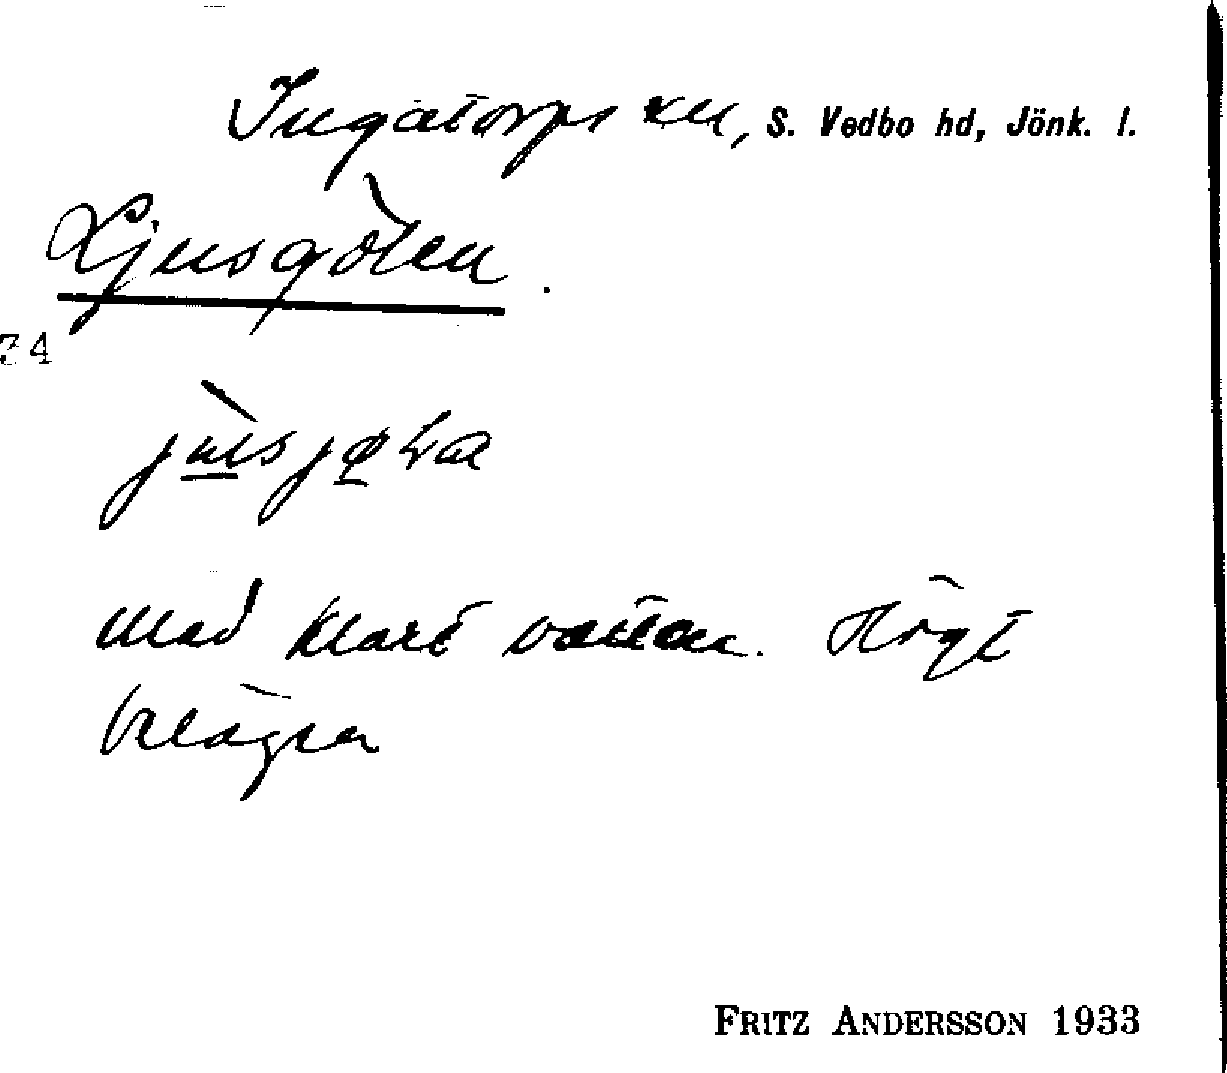 Ingatorps sn, S. Vedbo hd, Jönk. l.
Ljusgölen.
34
med klart vatten. Högt
belägen
FRITZ ANDERSSON 1933